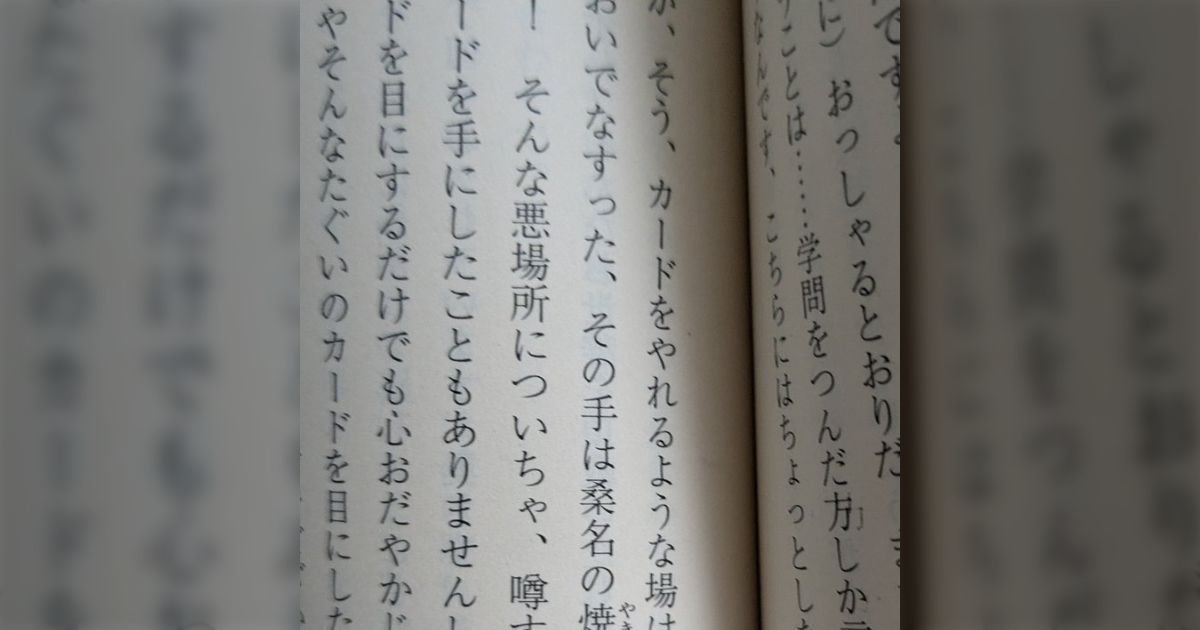 です
に）おっしゃるとおりだ
学問をつんだ方しか
りことは……
なんです、こちらにはちょっとした
が、そう、カードをやれるような場は
おいでなすった、その手は桑名の焼
やき
！　そんな悪場所についちゃ、噂す
ードを手にしたこともありませんし
ドを目にするだけでも心おだやかじ
やそんなたぐいのカードを目にした